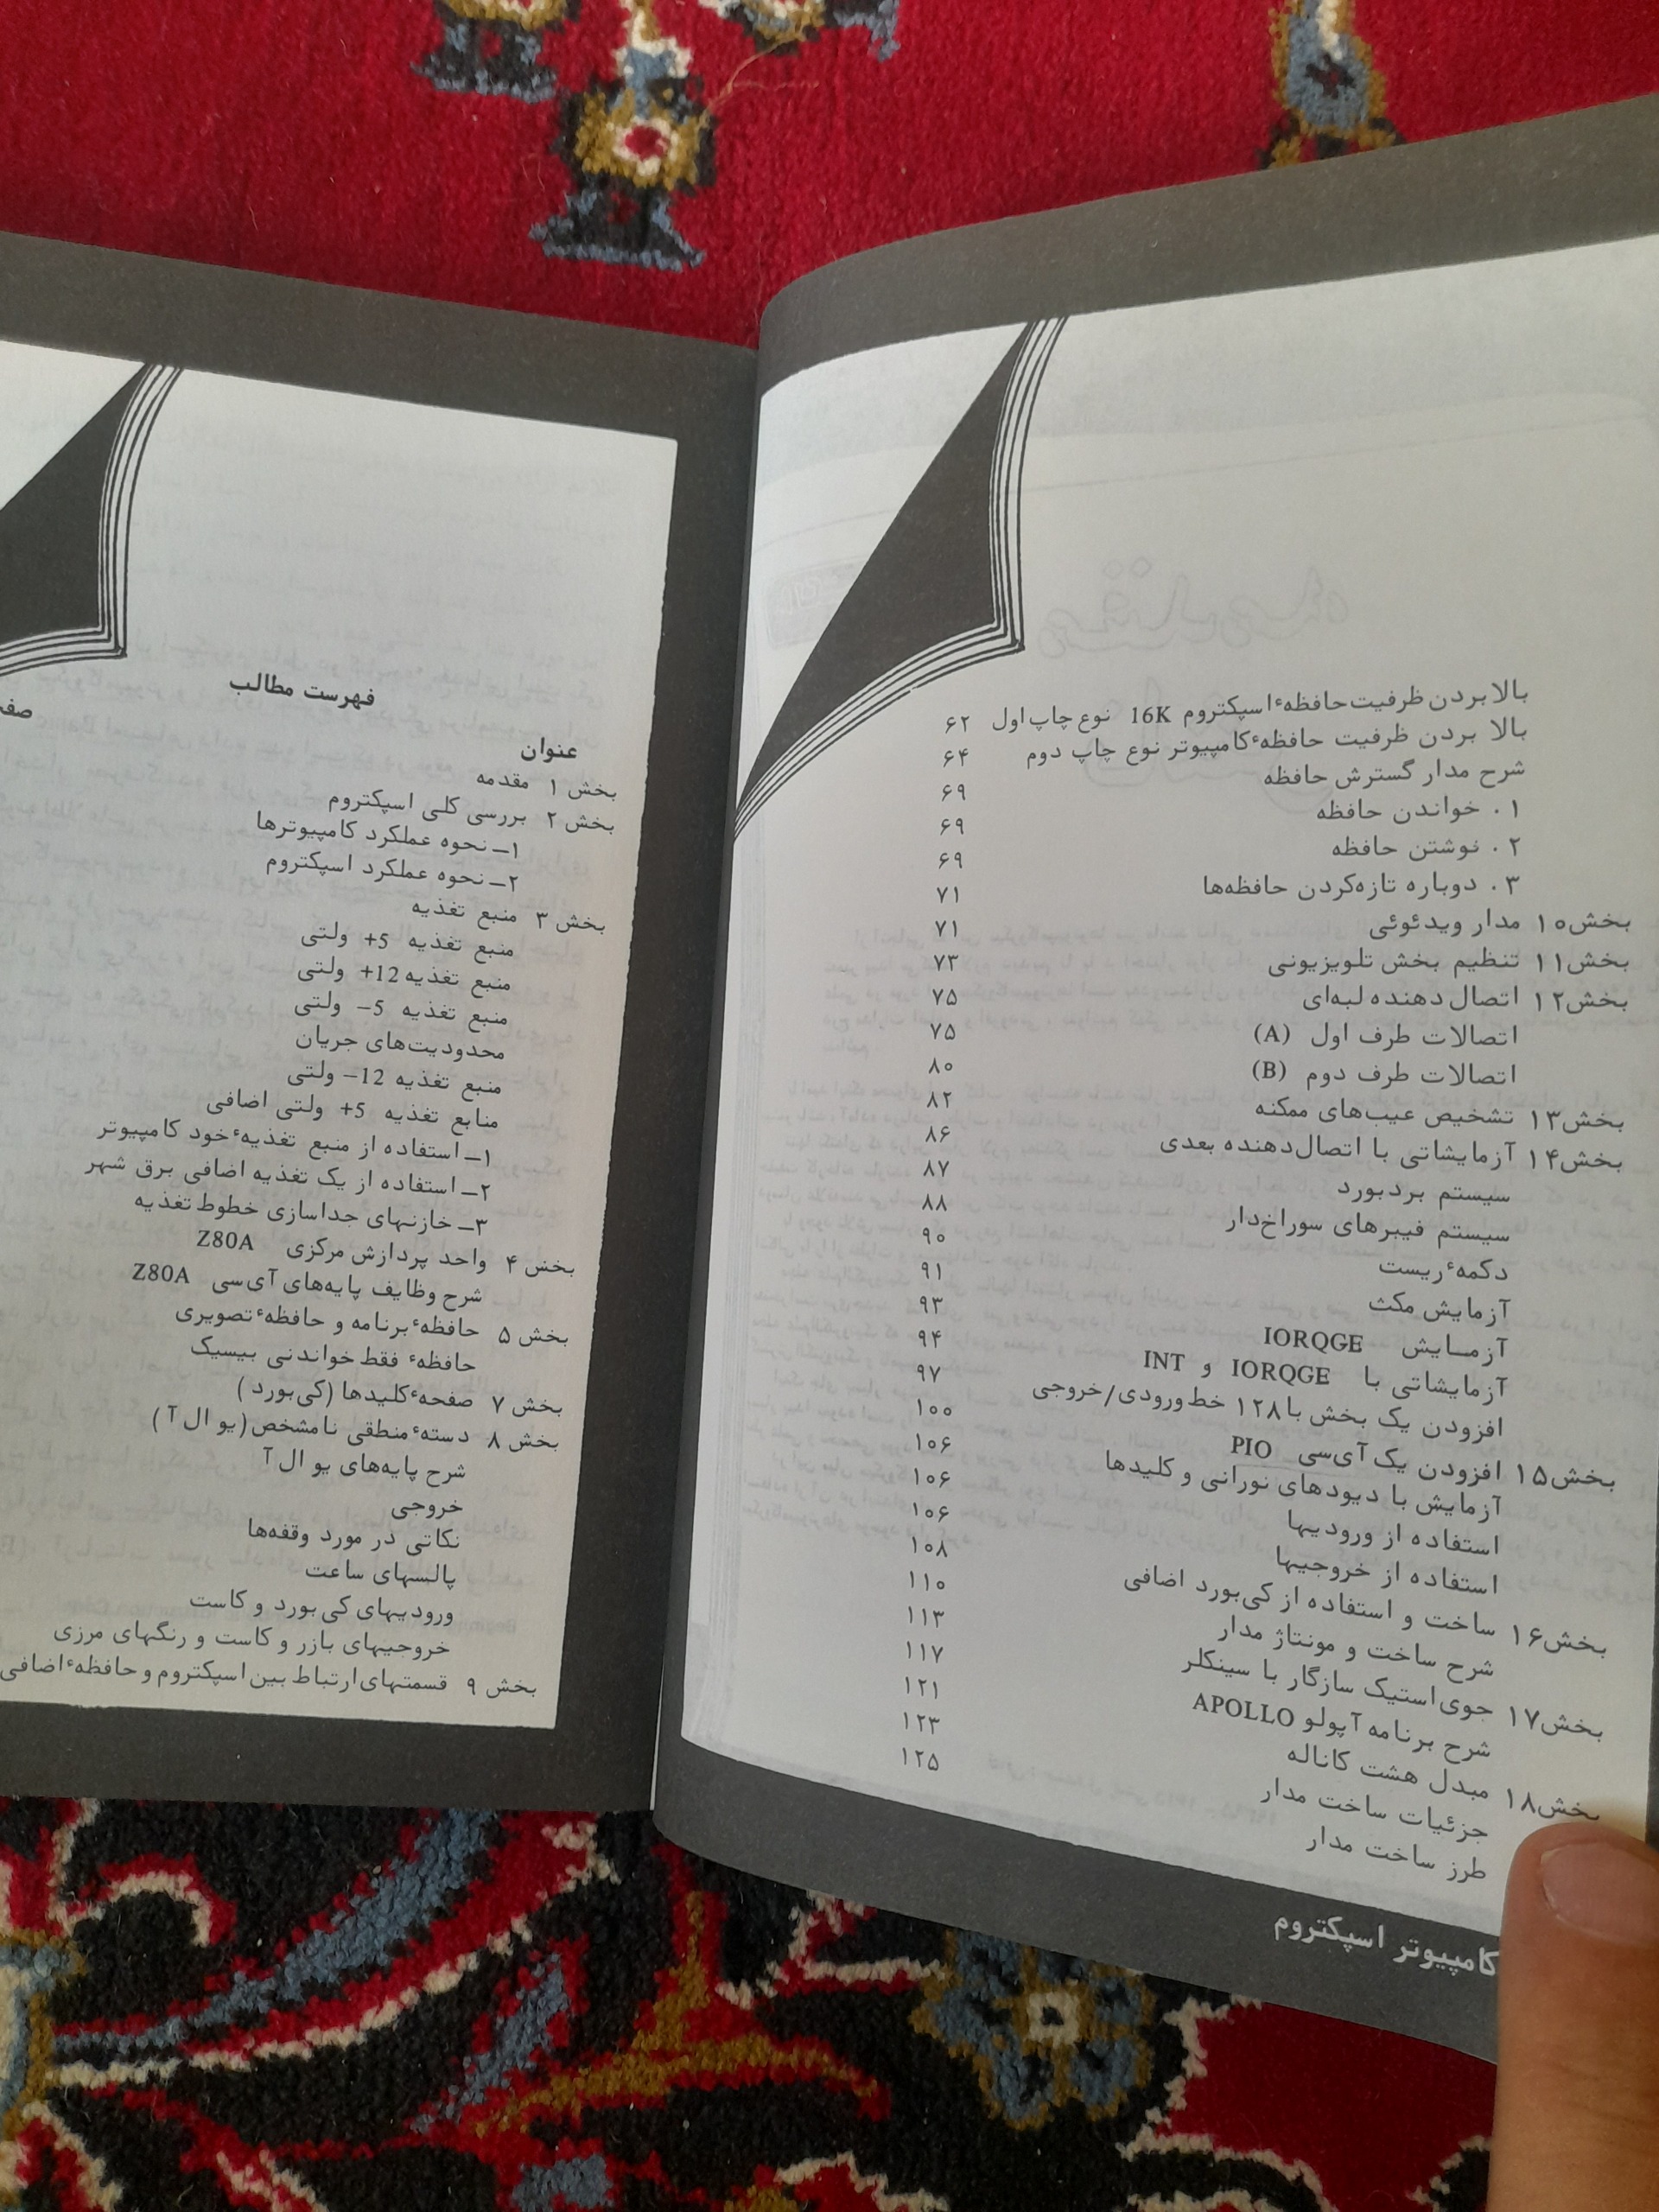 فهرست مطالب
عنوان
بخش ۱ مقدمه
بخش ۲ بررسی کلی اسپکتروم
۱ـ نحوه عملکرد کامپیوترها
۲ـ نحوه عملکرد اسپکتروم
بخش ۳ منبع تغذیه
منبع تغذیه 5+ ولتی
منبع تغذیه 12+ ولتی
منبع تغذیه 5− ولتی
محدودیت‌های جریان
منبع تغذیه 12− ولتی
منابع تغذیه 5+ ولتی اضافی
۱ـ استفاده از منبع تغذیهٔ خود کامپیوتر
۲ـ استفاده از یک تغذیه اضافی برق شهر
۳ـ خازنهای جداسازی خطوط تغذیه
بخش ۴ واحد پردازش مرکزی Z80A
شرح وظایف پایه‌های آی‌سی Z80A
بخش ۵ حافظهٔ برنامه و حافظهٔ تصویری
حافظهٔ فقط خواندنی بیسیک
بخش ۷ صفحهٔ کلیدها (کی‌بورد)
بخش ۸ دستهٔ منطقی نامشخص (یو ال آ)
شرح پایه‌های یو ال آ
خروجی
نکاتی در مورد وقفه‌ها
پالسهای ساعت
ورودیهای کی‌بورد و کاست
خروجیهای بازر و کاست و رنگهای مرزی
بخش ۹ قسمتهای ارتباط بین اسپکتروم و حافظهٔ اضافی
بالا بردن ظرفیت حافظهٔ اسپکتروم 16K نوع چاپ اول ۶۲
بالا بردن ظرفیت حافظهٔ کامپیوتر نوع چاپ دوم ۶۴
شرح مدار گسترش حافظه ۶۹
۱. خواندن حافظه ۶۹
۲. نوشتن حافظه ۶۹
۳. دوباره تازه‌کردن حافظه‌ها ۷۱
بخش۱۰ مدار ویدئوئی ۷۱
بخش۱۱ تنظیم بخش تلویزیونی ۷۳
بخش۱۲ اتصال دهنده لبه‌ای ۷۵
اتصالات طرف اول (A) ۷۵
اتصالات طرف دوم (B) ۸۰
بخش۱۳ تشخیص عیب‌های ممکنه ۸۲
بخش۱۴ آزمایشاتی با اتصال‌دهنده بعدی ۸۶
سیستم بردبورد ۸۷
سیستم فیبرهای سوراخ‌دار ۸۸
دکمهٔ ریست ۹۰
آزمایش مکث ۹۱
آزمـایش IORQGE ۹۳
آزمایشاتی با IORQGE و INT ۹۴
افزودن یک بخش با ۱۲۸ خط ورودی/خروجی ۹۷
بخش۱۵ افزودن یک آی‌سی PIO ۱۰۰
آزمایش با دیودهای نورانی و کلیدها ۱۰۶
استفاده از ورودیها ۱۰۶
استفاده از خروجیها ۱۰۶
بخش۱۶ ساخت و استفاده از کی‌بورد اضافی ۱۰۸
شرح ساخت و مونتاژ مدار ۱۱۰
بخش۱۷ جوی‌استیک سازگار با سینکلر ۱۱۳
شرح برنامه آپولو APOLLO ۱۱۷
بخش۱۸ مبدل هشت کاناله ۱۲۱
جزئیات ساخت مدار ۱۲۳
طرز ساخت مدار ۱۲۵
کامپیوتر اسپکتروم